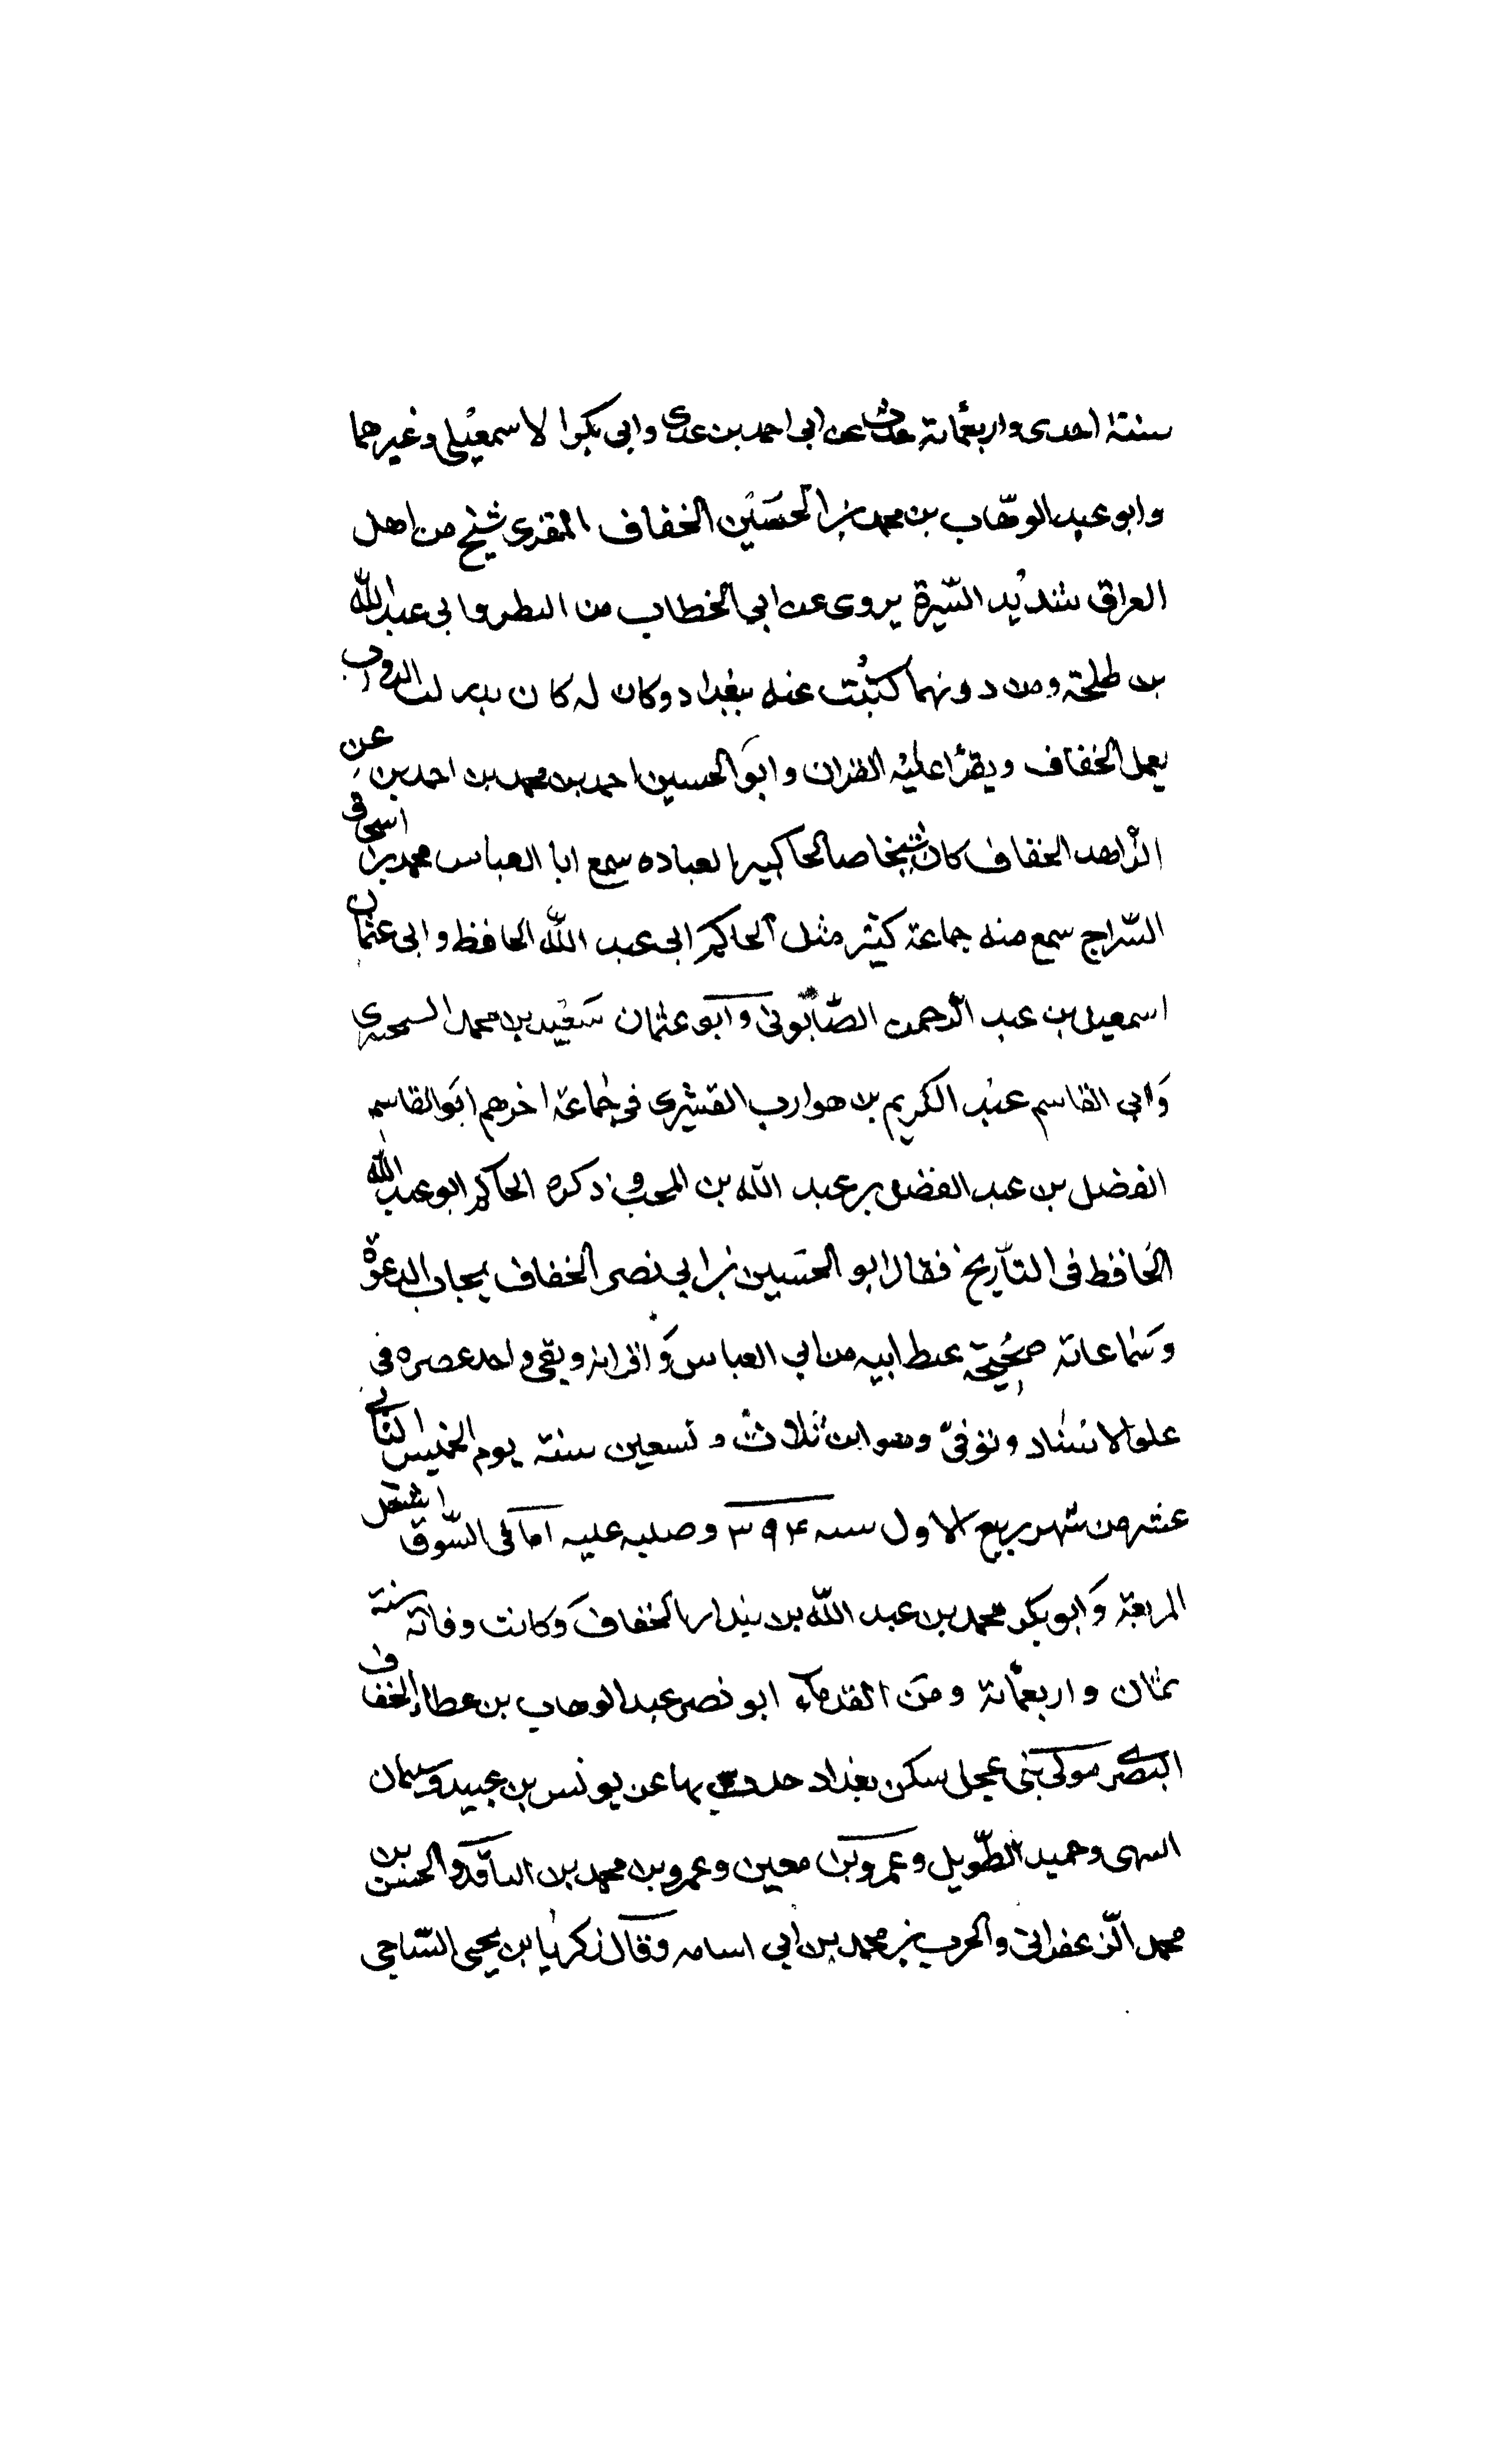 سنة احدى واربعمائة حدث عن ابى احمد بن عدى وابى بكرا لاسمعيلى وغيرهما
وابو عبد الوهّاب بن محمد بن الحسين الخفاف المقرى شيخ من اهل
العراق شديد السّيرة يروى عن ابى الخطاب من البطر وابى عبد الله
بن طلحة ومن دونهما كتبت عنه ببغداد وكان له كان بدرب الدواب
يعمل الخفاف ويقرأ عليه القران وابو الحسين احمد بن محمد بن احمد بن عمر
الزاهد الخفاف كان شيخا صالحا كبير العباده سمع ابا العباس محمد بن اسحاق
السّراج سمع منه جماعة كثير مثل الحاكم ابى عبد الله الحافظ وابى عثمان
اسمعيل بن عبد الرّحمن الصّابونى وابو عثمان سعيد بن محمد البحيرى
وابى القاسم عبد الكريم بن هوازن القشيرى فى جماعة اخرهم ابو القاسم
الفضل بن عبد الفضل بن عبد الله بن المحب ذكره الحاكم ابو عبد الله
الحافظ فى التّاريخ فقال ابو الحسين بن ابى نصر الخفاف مجاب الدعوة
وسماعاته صحيحة بخط ابيه من ابى العباس واقرانه وبقى واحد عصره فى
علو الاسناد وتوفىّ وهو ابن ثلاث وتسعين سنة يوم الخميس الثانى
عشر من شهر ربيع الاول سنه ٣٩۴ وصليه عليه اما فى السّوق
المربعة وابو بكر محمد بن عبد الله بن بندار الخفاف وكانت وفاته سنة
ثمان واربعمائة ومن القدماء ابو نصر عبد الوهاب بن عطاء الخفاف
البصرى مولى بنى عجل سكن بغداد حدث بها عن يونس بن عبيد وسلمان
التيمى وحميد الطّويل وعمرو بن معين وعمرو بن محمد بن الناقد والحسن بن
محمد الزّعفرانى والحرث بن محمد بن ابى اسامه وقال زكريا بن يحيى السّاجى